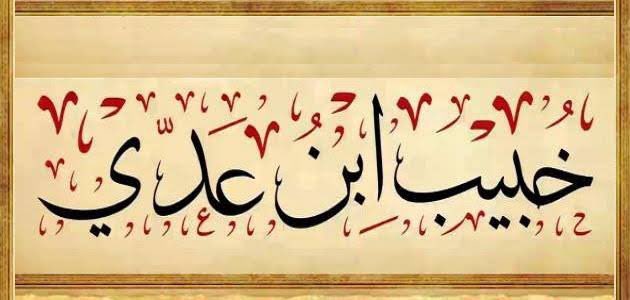 خبيب ابن عدي